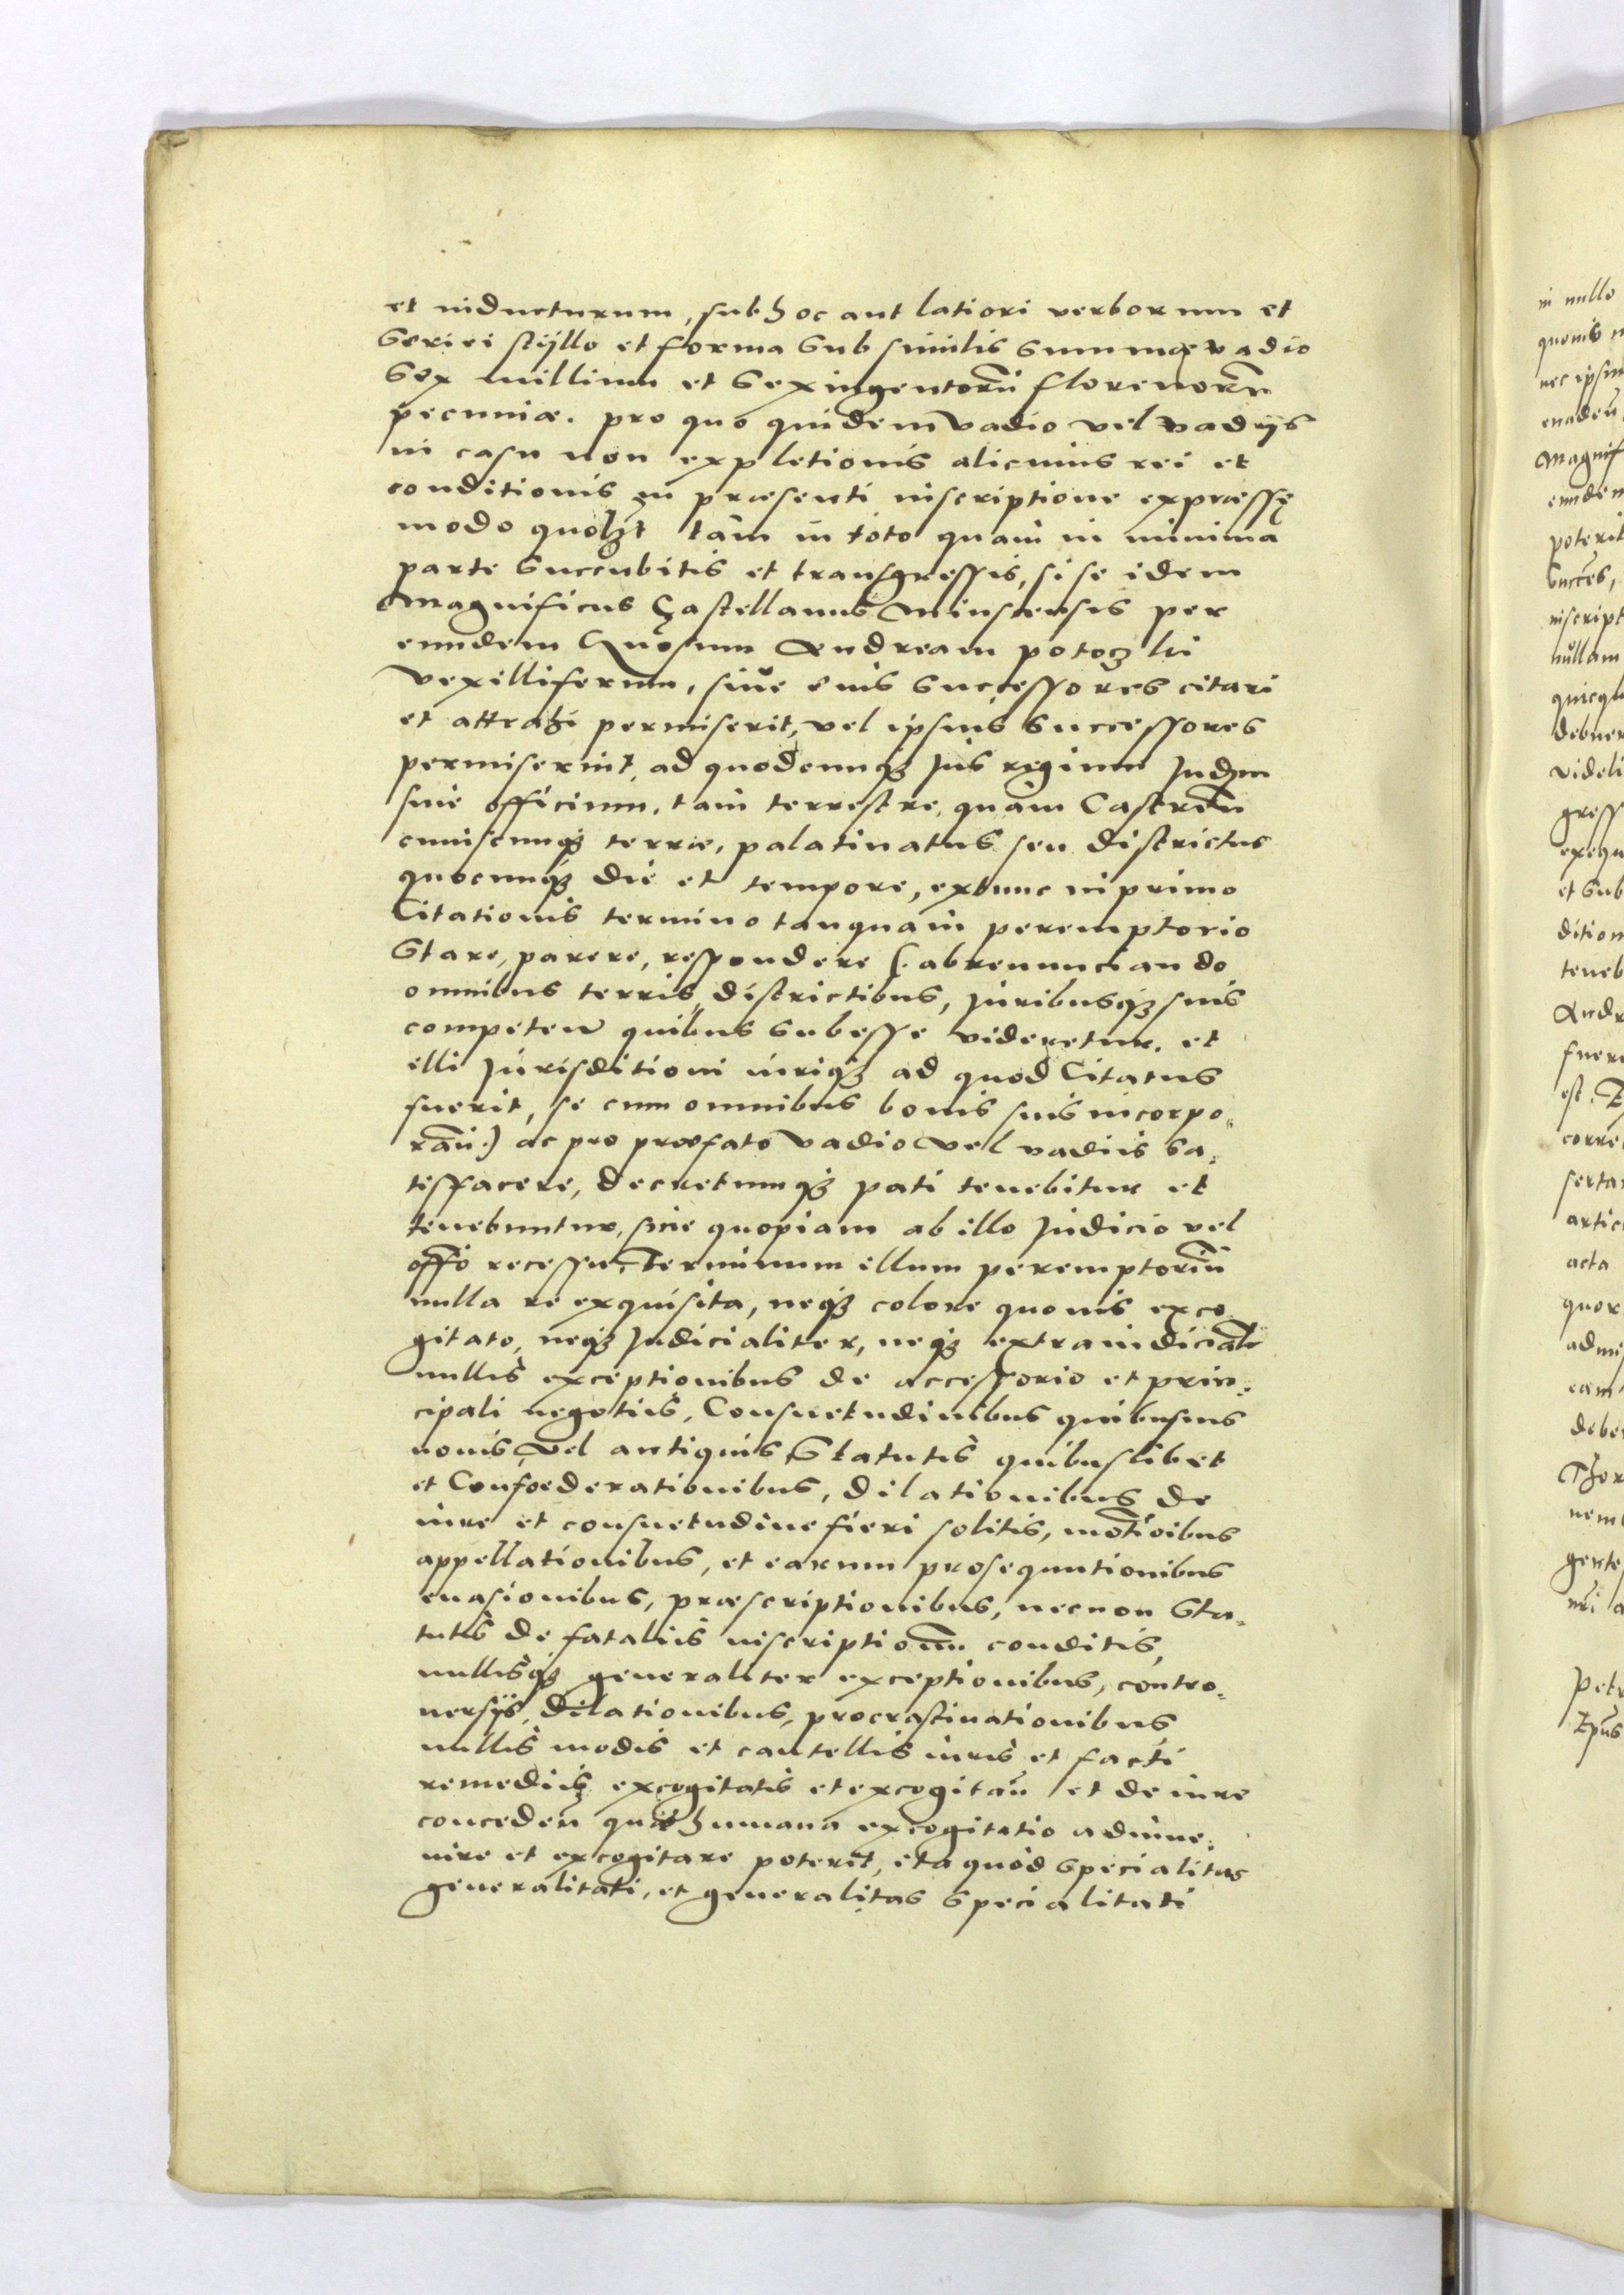 et inducturum, sub hoc aut latiori verborum et
seriei stijllo et forma sub similis summæ vadio
sex millium et sexingentorũ florenorũ
pecuniæ. pro quo quidem vadio vel vadijs
in casu non expletionis alicuius rei et
conditionis in præsenti inscriptione expræssę
modo quolȝt tam in toto quam in minima
parte succubitis et transgressis, si se idem
Magnificus Castellanus Minscensis per
eundem Gnosum Andream potoczki
Vexilliferum, siue eius successores citari
et attrahi permiserit, vel ipsius successores
permiserint, ad quodcunqȝ Jus regium Judm
siue officium, tam terrestre, quam Castreñ
cuiuscunqȝ terræ, palatinatus seu districtus
quocunqȝ die et tempore, extunc in primo
Citationis termino tanquam peremptorio
Stare, parere, respondere (. abrenunciando
omnibus terris, districtibus, Juribusqȝ suis
competeñ quibus subesse videretur. et
illi Jurisditioni iuriqȝ ad quod Citatus
fuerit, se cum omnibus bonis suis incorpo-
rañ.) ac pro præfato vadio vel vadiis sa-
tisfacere, decretumqȝ pati tenebitur et
tenebuntur, sine quopiam ab illo Judicio vel
offo recessu. Terminum illum peremptoriũ
nulla re exquisita, neqȝ colore quouis exco-
gitato, neqȝ Judicialiter, neqȝ extraiudicialr
nullis exceptionibus de accessorio et prin-
cipali negotiis, Consuetudinibus quibusuis
nouis, vel antiquis Statutis quibuslibet
et Confoederationibus, dilationibus de
iure et consuetudine fieri solitis, motioibus
appellationibus, et earum prosequutionibus
euasionibus, præscriptionibus, necnon Sta-
tutis de fataliis inscriptionum conditis,
nullisqȝ generaliter exceptionibus, contro-
uersijs, dilationibus, procrastinationibus
nullis modis et cautellis iuris et facti
remediis excogitatis et excogitañ et de iure
concedeñ quæ humana excogitatio adinue-
nire et excogitare poterit, ita quod specialitas
generalitati, et generalitas specialitati
in nullo
quouis
nec ipsiu
Magnif
eunden
poterit
inscript
nullam
debuer
videli
gress
exequ
et sub
dition
teneb
Andr
fuer
est.
corre
artic
acta
quor
eam
debe
gente
Petr